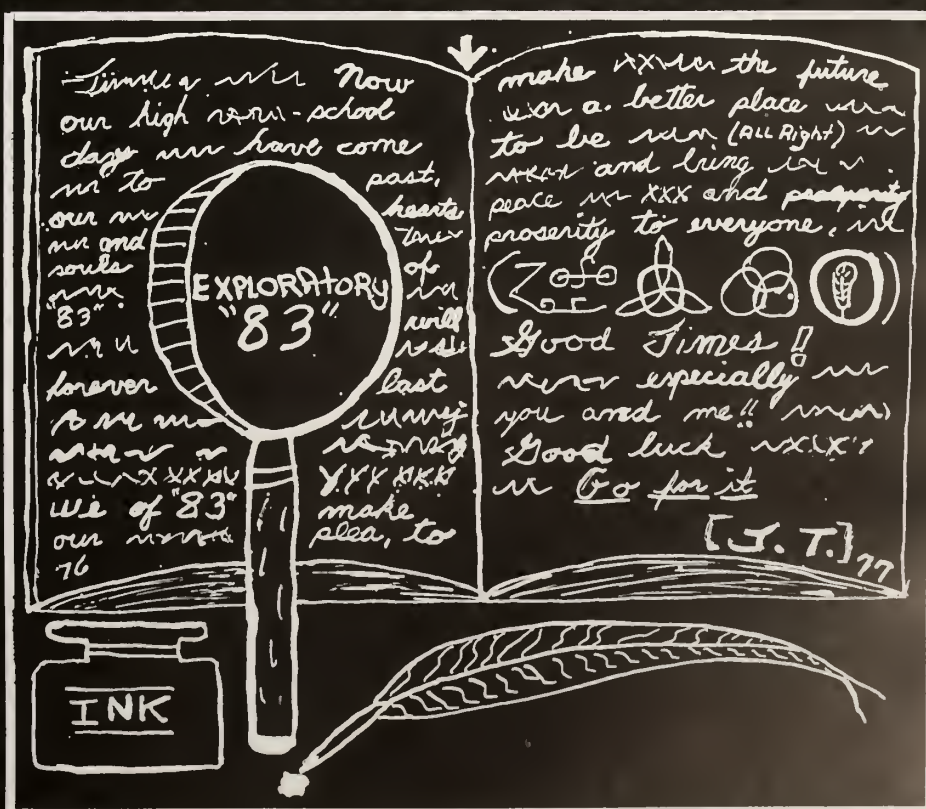 Now
our high -school
days have come
to past,
our hearts
and
souls of
"83" will
forever last
We of "83" make
our plea, to
76
make the future
a better place
to be (ALL Right)
and bring
peace XXX and prosperity
proserity to everyone,
Good Times!!
especially
you and me!!
Good luck
Go for it
[J. T.]
77
EXPLORATORY
"83"
INK